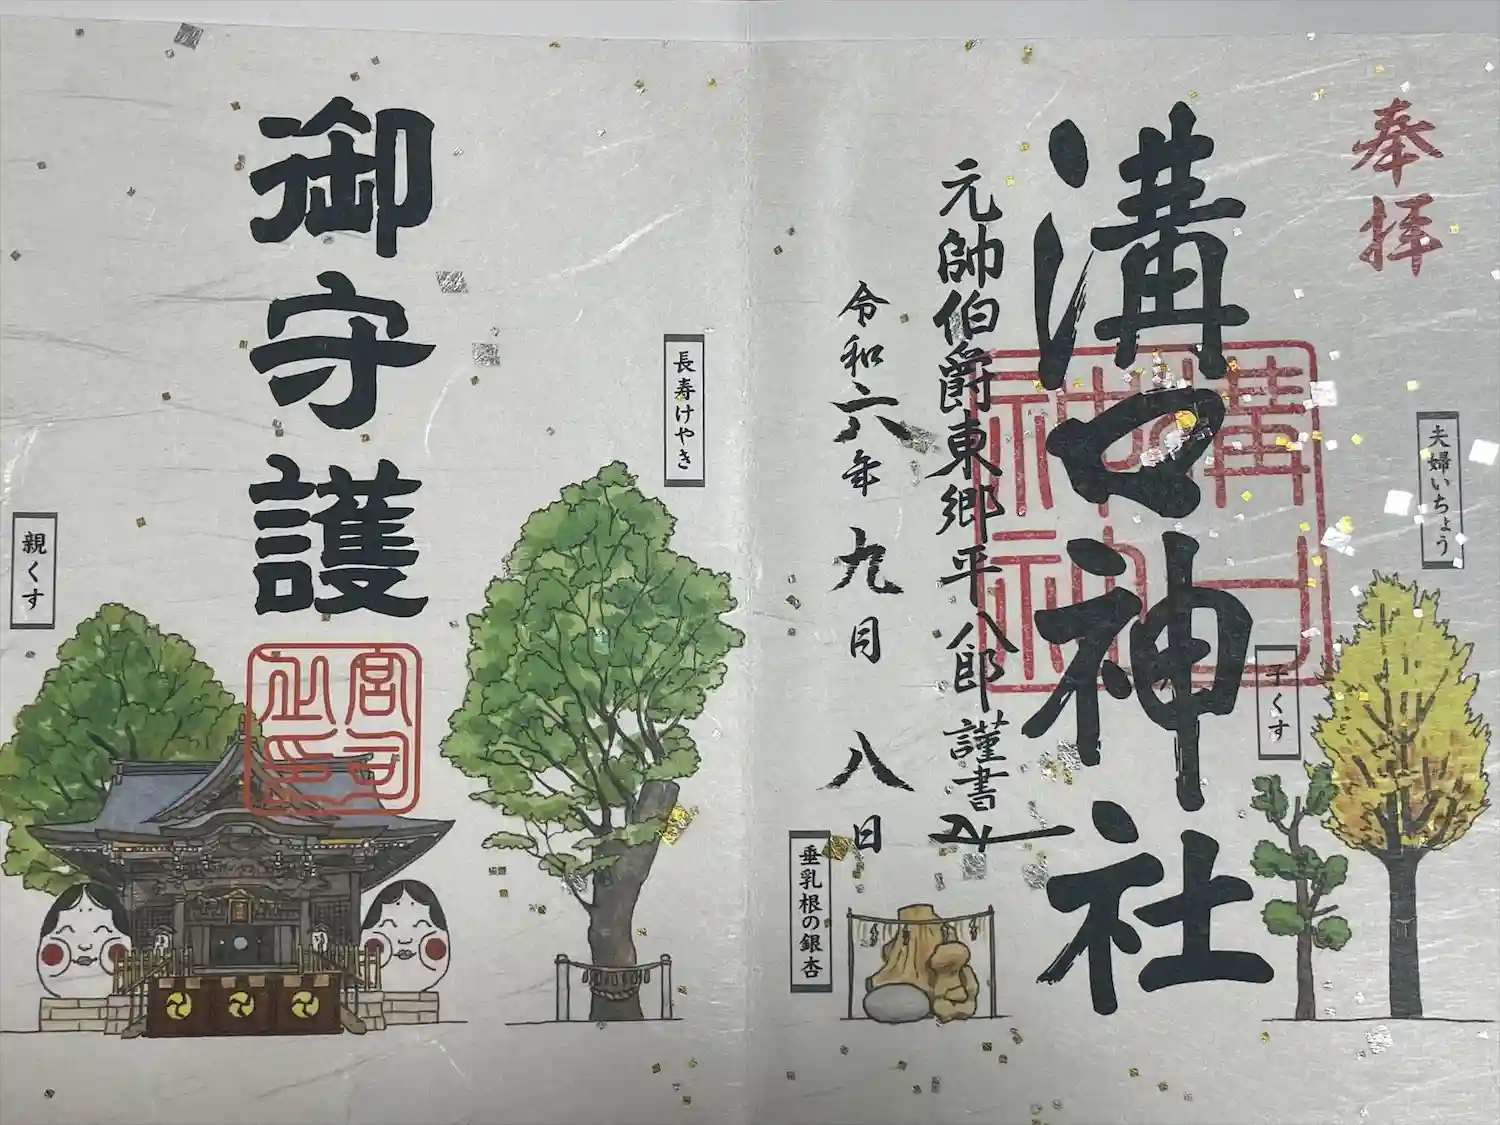 奉拝
夫婦いちょう
子くす
溝口神社
溝口神社
元帥伯爵東郷平八郎謹書
令和六年九月八日
垂乳根の銀杏
長寿けやき
御守護
宮司之印
親くす